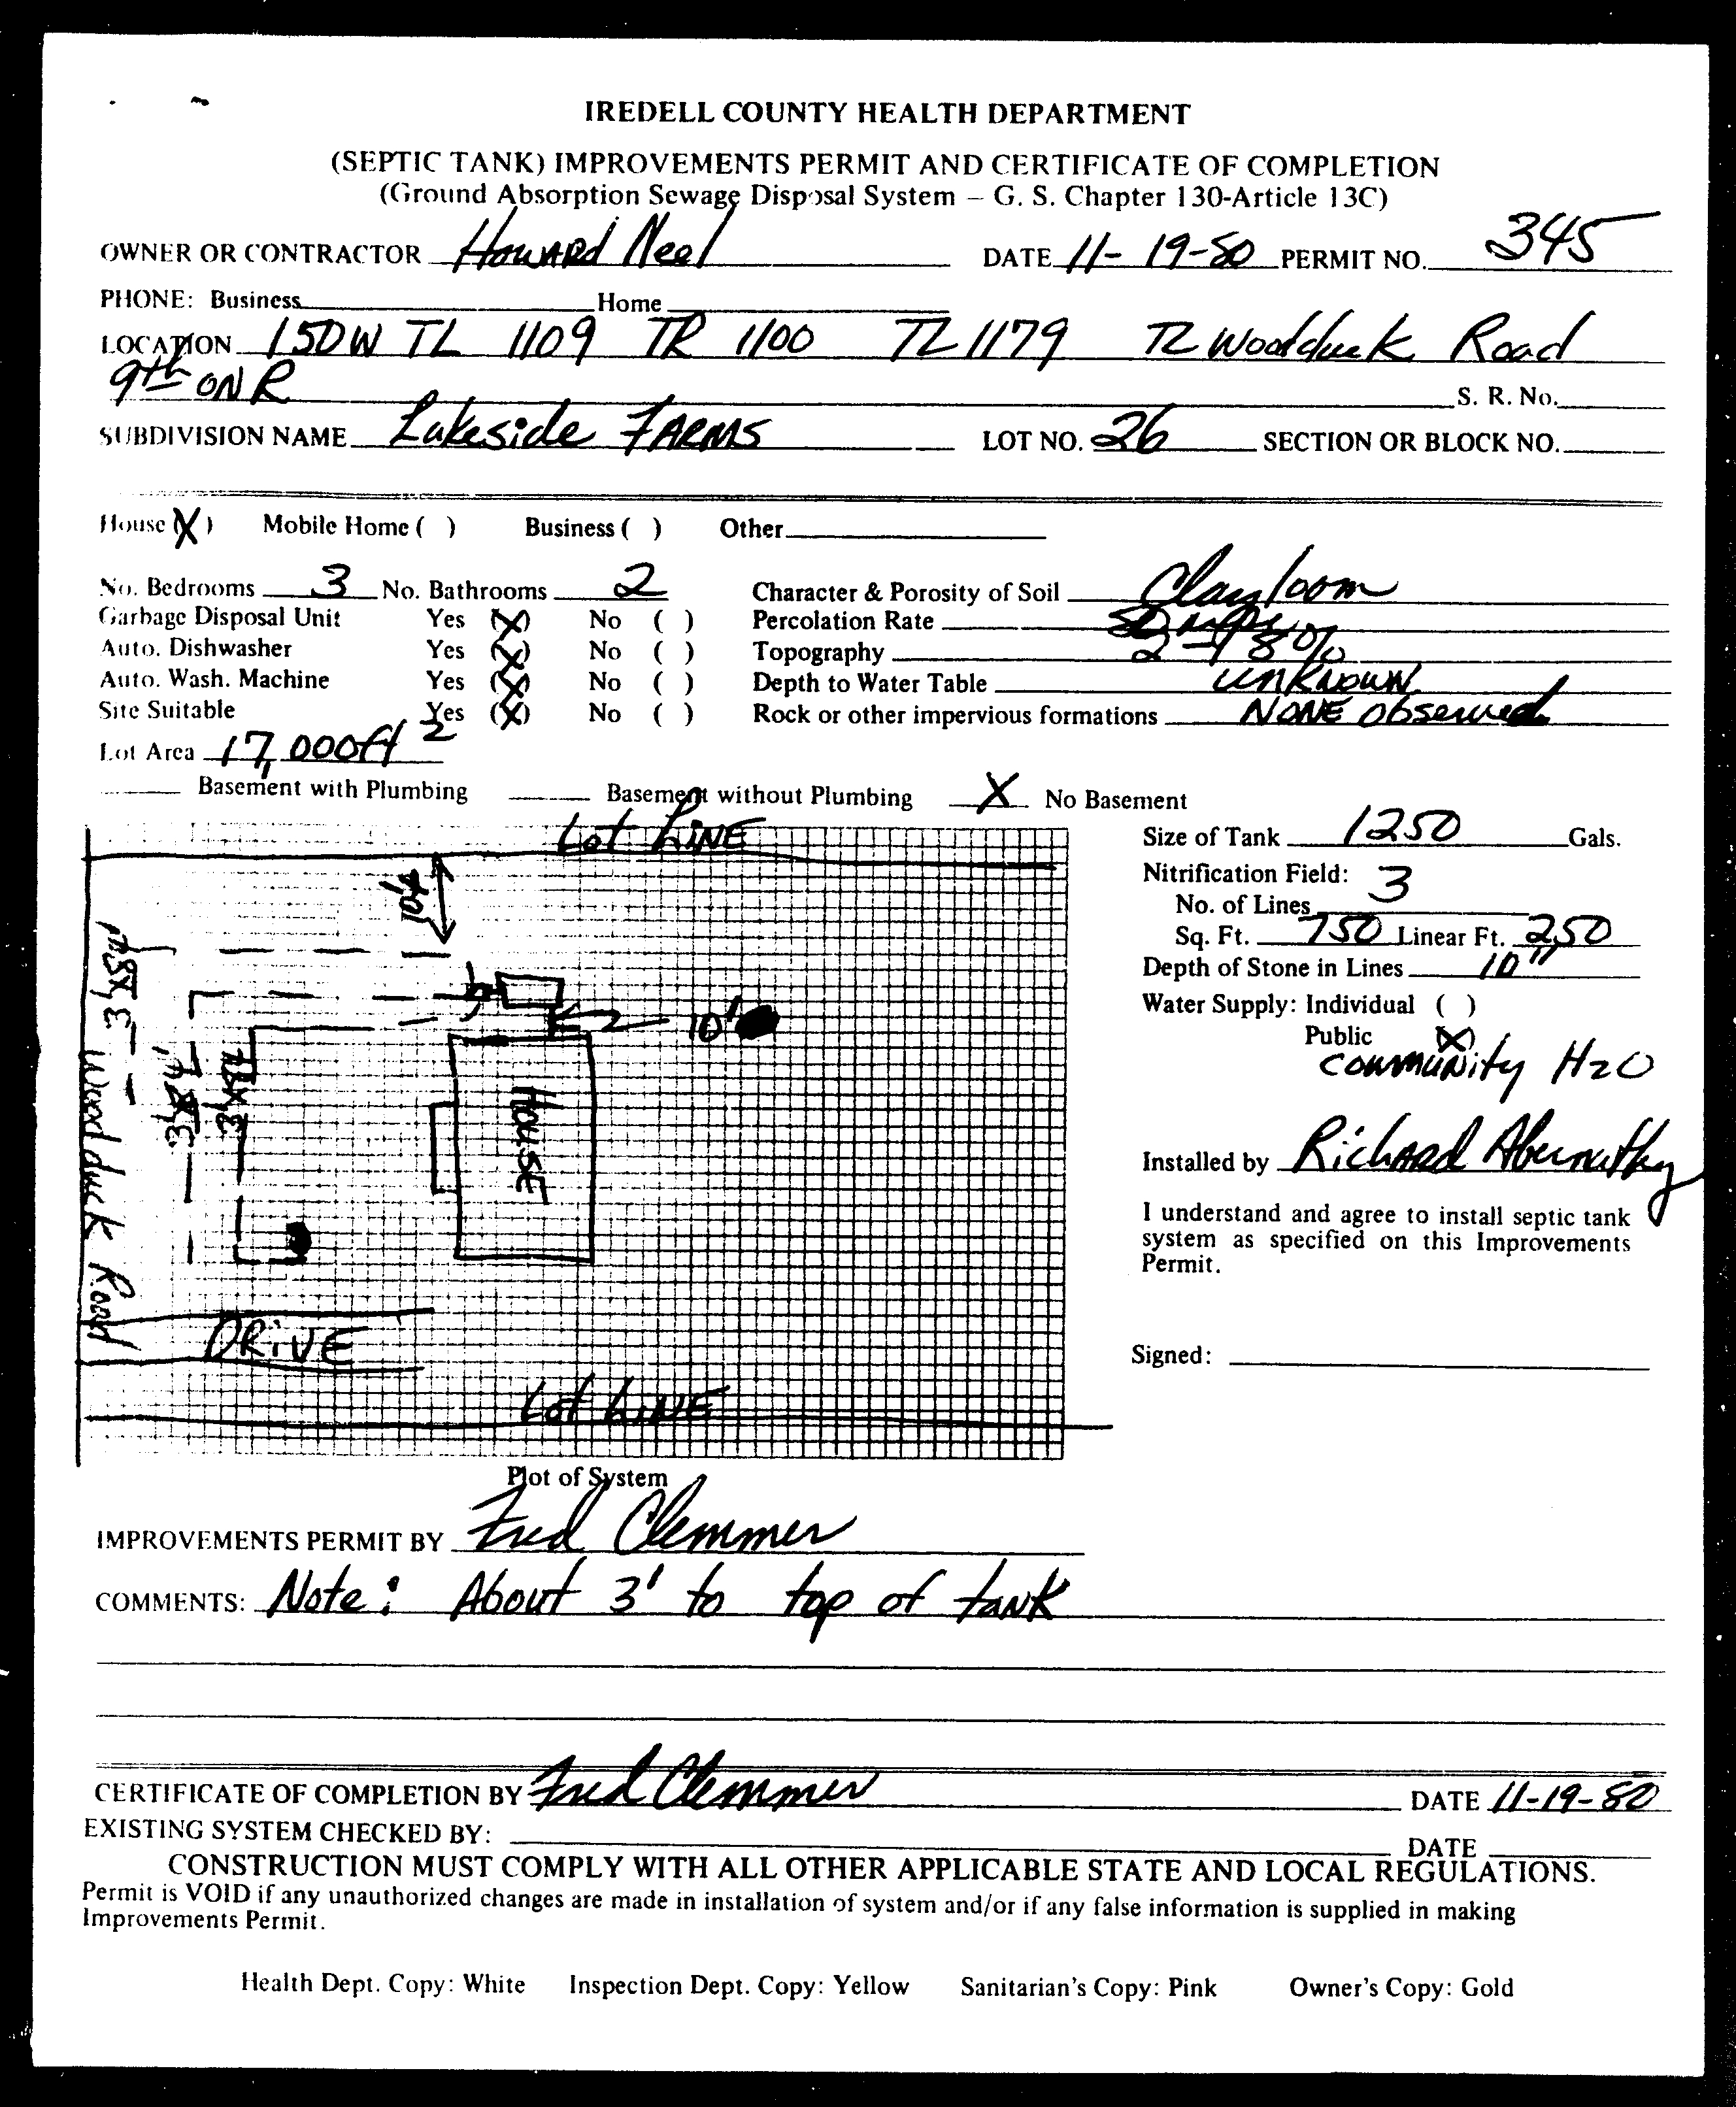 IREDELL COUNTY HEALTH DEPARTMENT
(SEPTIC TANK) IMPROVEMENTS PERMIT AND CERTIFICATE OF COMPLETION
(Ground Absorption Sewage Disposal System – G. S. Chapter 130-Article 13C)
OWNER OR CONTRACTOR Howard Neel DATE 11-19-80 PERMIT NO. 345
PHONE: Business Home
LOCATION 150W TL 1109 TR 1100 TL 1179 TL Woodduck Road
9th ON R S. R. No.
SUBDIVISION NAME Lakeside FARMS LOT NO. 26 SECTION OR BLOCK NO.
House (X) Mobile Home ( ) Business ( ) Other
No. Bedrooms 3 No. Bathrooms 2 Character & Porosity of Soil Clay loom
Garbage Disposal Unit Yes (X) No ( ) Percolation Rate
Auto. Dishwasher Yes (X) No ( ) Topography 2-8%
Auto. Wash. Machine Yes (X) No ( ) Depth to Water Table UNKNOWN
Site Suitable Yes (X) No ( ) Rock or other impervious formations NONE observed
Lot Area 17,000 ft2
Basement with Plumbing Basement without Plumbing X No Basement
Lot LINE
Size of Tank 1250 Gals.
Nitrification Field:
No. of Lines 3
Sq. Ft. 750 Linear Ft. 250
Depth of Stone in Lines 10"
Water Supply: Individual ( )
Public (X)
COMMUNITY H2O
10'
HOUSE
Wood duck Road
DRIVE
Lot LINE
Installed by Richard Abernathy
I understand and agree to install septic tank
system as specified on this Improvements
Permit.
Signed:
Plot of System
IMPROVEMENTS PERMIT BY Fred Clemmer
COMMENTS: Note: About 3' to top of tank
CERTIFICATE OF COMPLETION BY Fred Clemmer DATE 11-19-80
EXISTING SYSTEM CHECKED BY: DATE
CONSTRUCTION MUST COMPLY WITH ALL OTHER APPLICABLE STATE AND LOCAL REGULATIONS.
Permit is VOID if any unauthorized changes are made in installation of system and/or if any false information is supplied in making
Improvements Permit.
Health Dept. Copy: White Inspection Dept. Copy: Yellow Sanitarian's Copy: Pink Owner's Copy: Gold